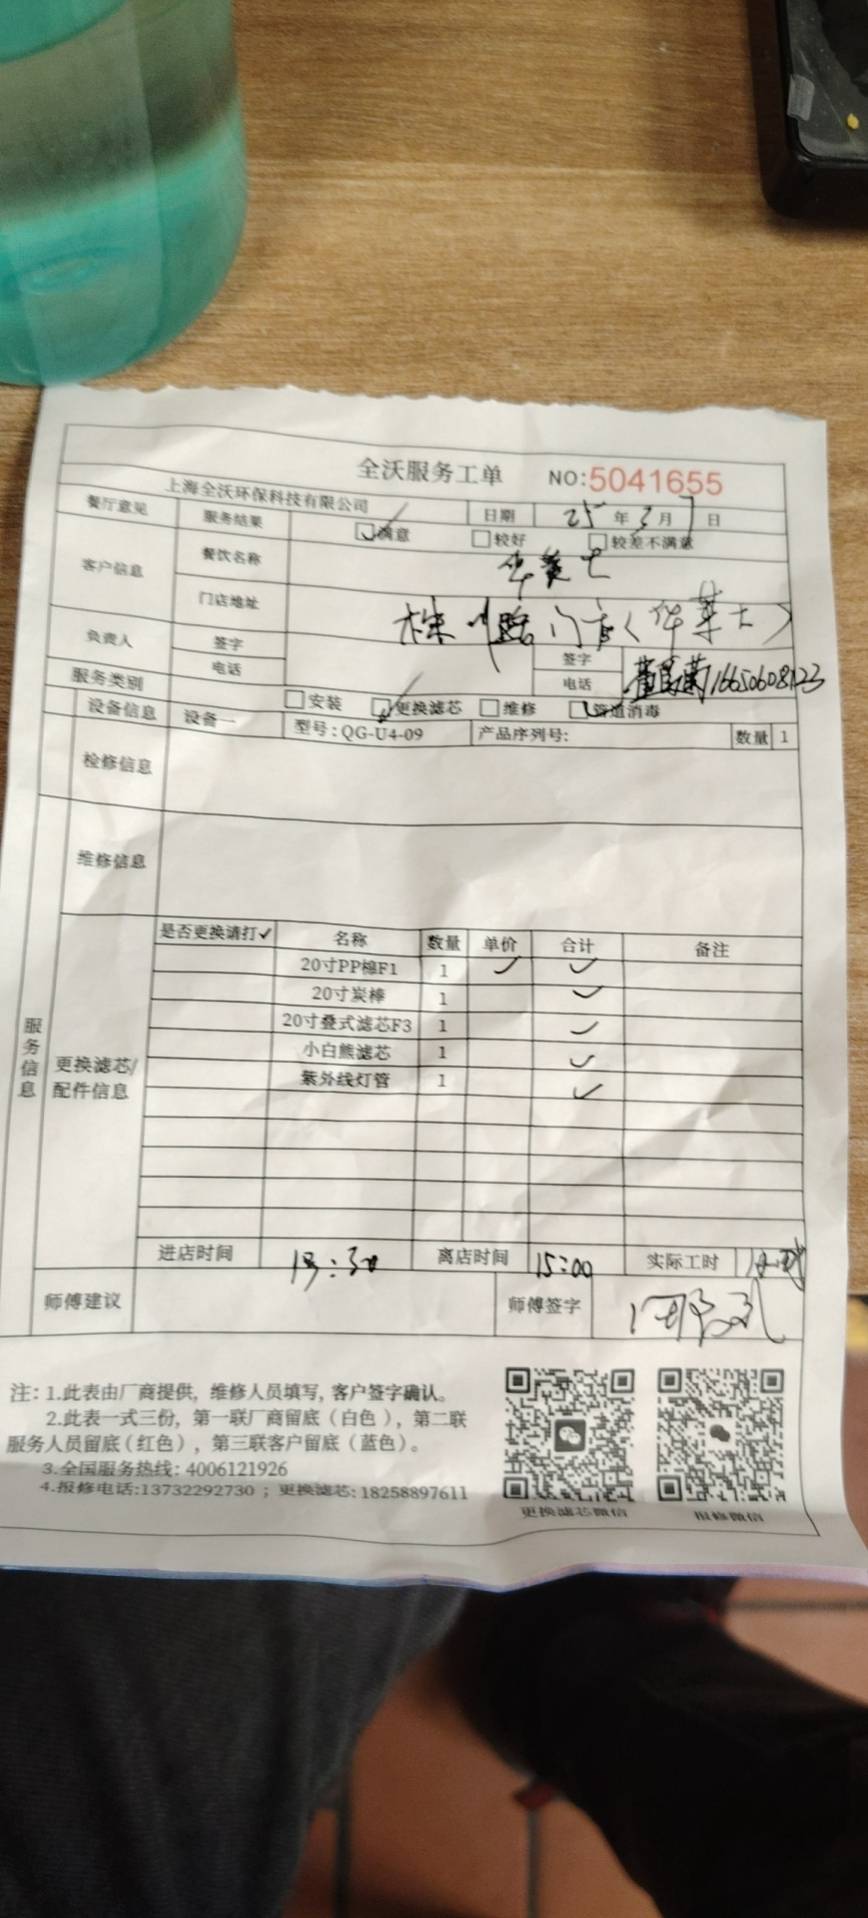 全沃服务工单 NO:5041655
上海全沃环保科技有限公司 日期 25 年 3 月 7 日
餐厅意见 服务结果 满意 较好 较差不满意
客户信息 餐饮名称 华莱士
门店地址 株洲路门店(华莱士)
负责人 签字 签字
电话 电话 16650608123
服务类别 安装 更换滤芯 维修 管道消毒
设备信息 设备一 型号:QG-U4-09 产品序列号: 数量 1
检修信息
维修信息
服务信息
更换滤芯/配件信息
是否更换请打✓ 名称 数量 单价 合计 备注
20寸PP棉F1 1 ✓ ✓
20寸炭棒 1 ✓
20寸叠式滤芯F3 1 ✓
小白熊滤芯 1 ✓
紫外线灯管 1 ✓
进店时间 13:30 离店时间 15:00 实际工时
师傅建议 师傅签字
注: 1.此表由厂商提供, 维修人员填写, 客户签字确认。
2.此表一式三份, 第一联厂商留底(白色), 第二联
服务人员留底(红色), 第三联客户留底(蓝色)。
3.全国服务热线: 4006121926
4.报修电话:13732292730 ; 更换滤芯: 18258897611
更换滤芯微信 报修微信